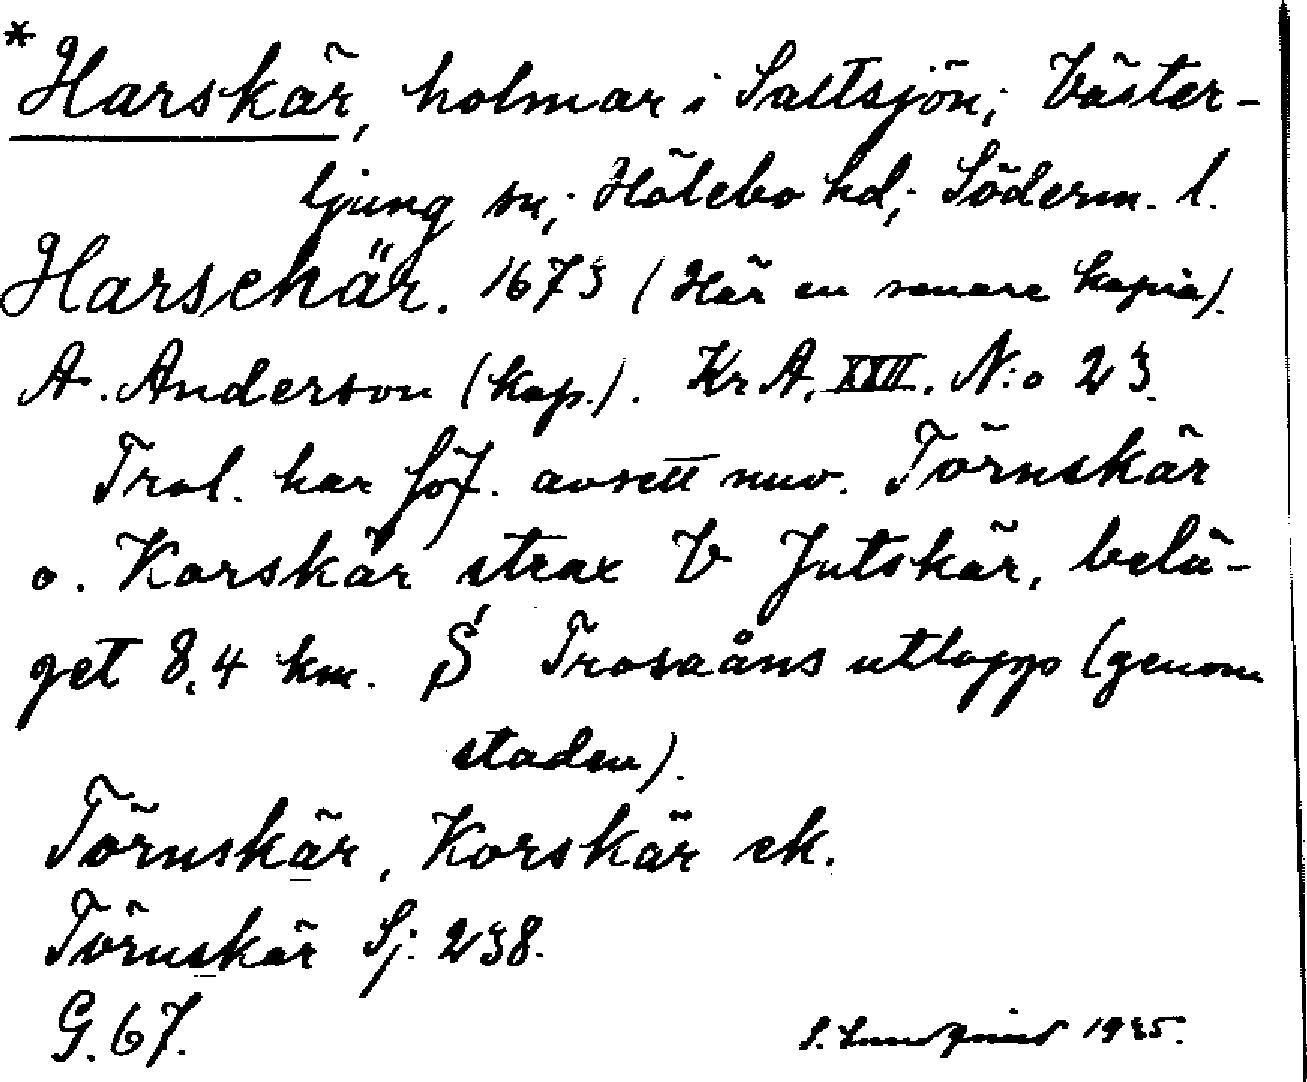 *Harskär, holmar i Saltsjön; Väster-
ljung sn; Hölebo hd; Söderm. l.
Harschär. 1673 (Här en senare kopia).
A. Anderson (kap.). Kr A. XXII. N:o 23.
Trol. har föf. avsett nuv. Törnskär
o. Korskär strax V Jutskär, belä-
get 8,4 km. S Trosaåns utlopp (genom
staden).
Törnskär, Korskär ek.
Törnskär Sj. 238.
G. 67.
S. Lundqvist 1935.